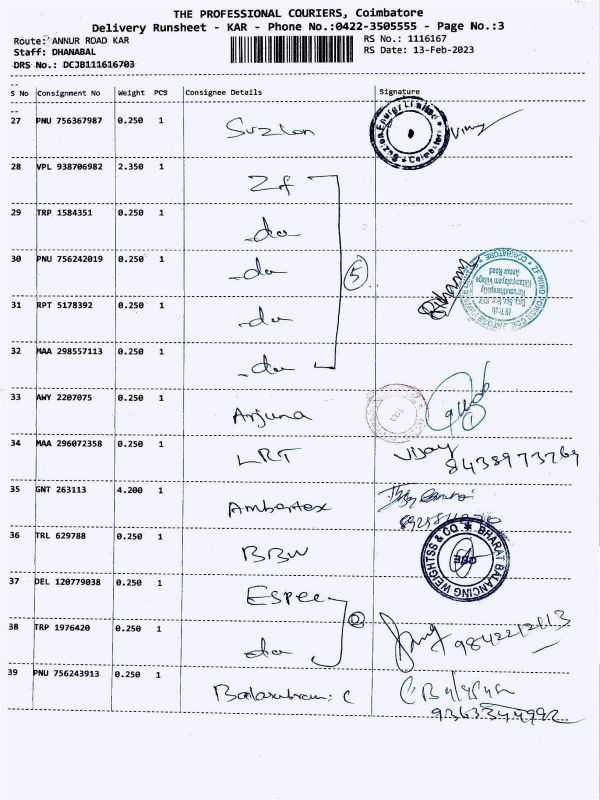 THE PROFESSIONAL COURIERS, Coimbatore
Delivery Runsheet - KAR - Phone No.:0422-3505555 - Page No.:3
Route: ANNUR ROAD KAR RS No.: 1116167
Staff: DHANABAL RS Date: 13-Feb-2023
DRS No.: DCJB111616703
S No Consignment No Weight PCS Consignee Details Signature
27 PNU 756367987 0.250 1 Suzlon Vijay
28 VPL 938706982 2.350 1 Zf
29 TRP 1584351 0.250 1 -do
30 PNU 756242019 0.250 1 -do 5
31 RPT 5178392 0.250 1 -do
32 MAA 298557113 0.250 1 -do
33 AWY 2207075 0.250 1 Arjuna
34 MAA 296072358 0.250 1 LRT Vijay
8438973269
35 GNT 263113 4.200 1 Ambertex
36 TRL 629788 0.250 1 BBW
BHARAT BALANCING WEIGHTSS & CO.
37 DEL 120779038 0.250 1 Espee
38 TRP 1976420 0.250 1 do
39 PNU 756243913 0.250 1
9363344992